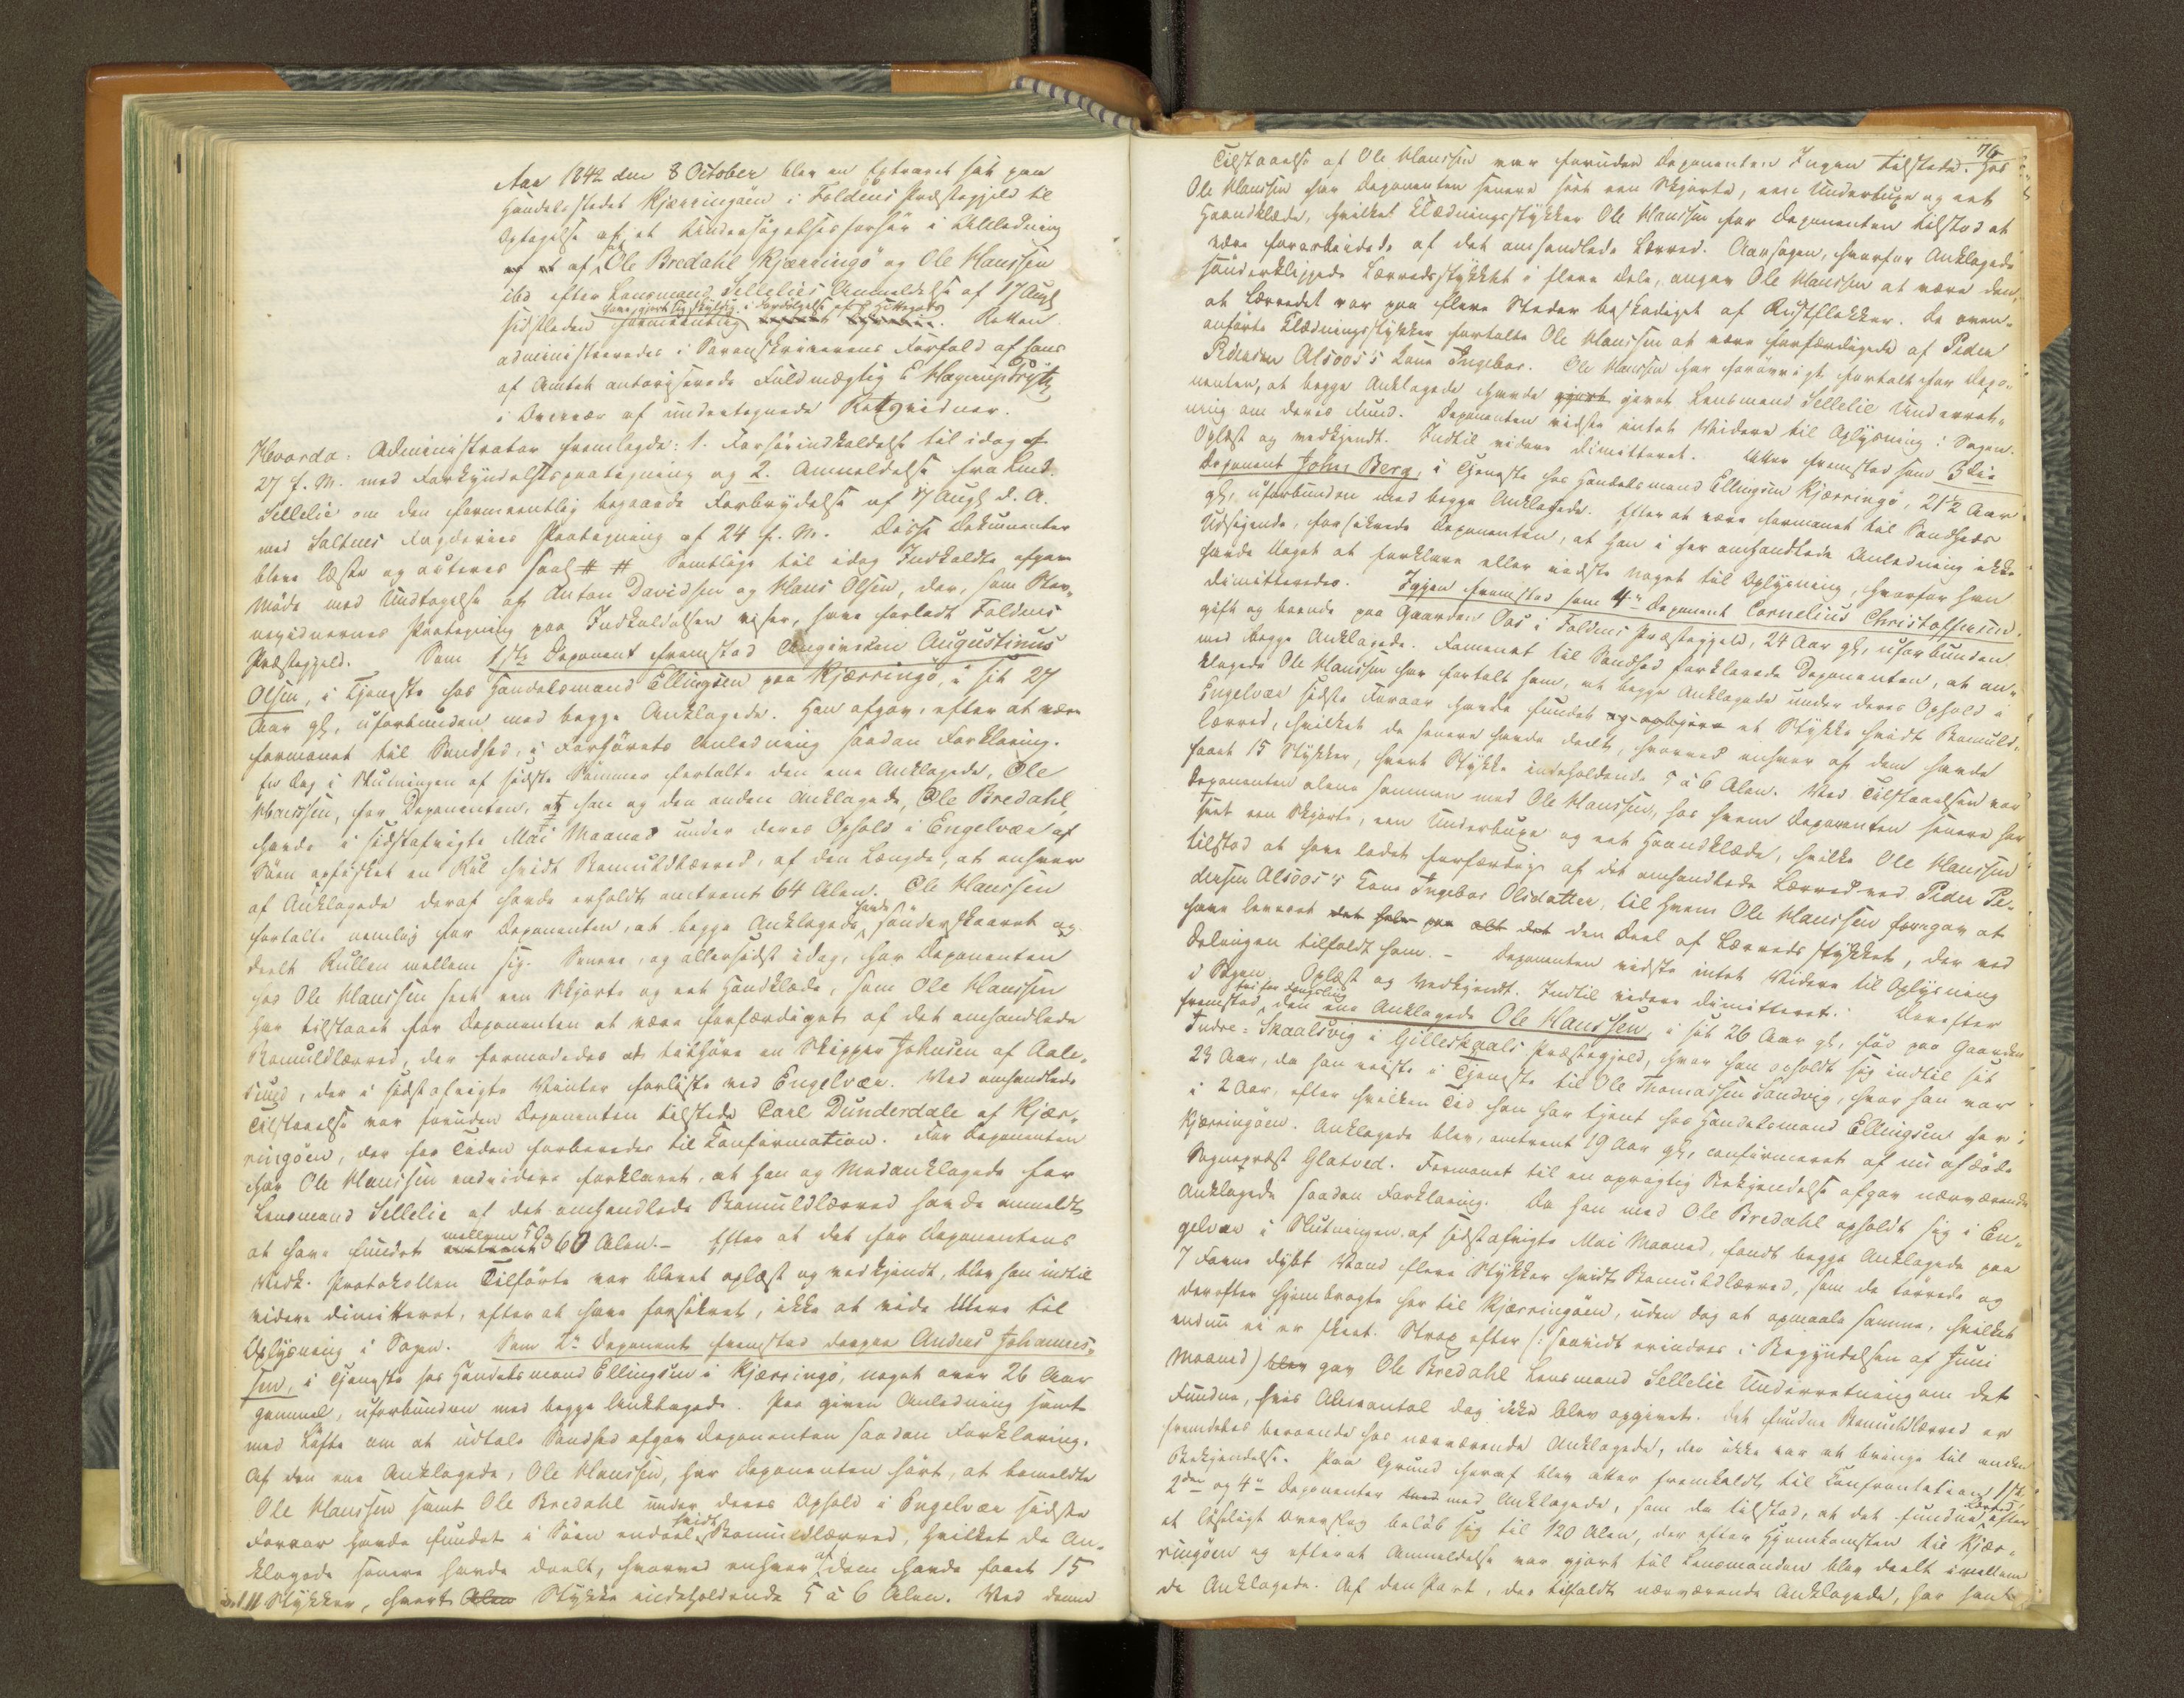 Aar 1842 den 8 October blev en Extraret sat paa
Handelsstedet Kjærringöen i Foldens Præstegjeld til
Optagelse af et Undersögelsesforhör i Anledning
af at Ole Bredahl Kjærringö og Ole Hanssen
ibd efter Lensmand Sellelies Anmeldelse af 17 Augt
have gjort sig skyldig i Fordölgelse af Hittegods
sidstleden formeentlig Retten
administreredes i Sorenskriverens Forfald af hans
af Amtet autoriserede Fuldmægtig E Hagerup
i Overvær af undertegnede Retsvidner.
Hvorda: Administrator fremlagde: 1. Forhörsindkaldelse til idag af
27 f. M. med Forkyndelsespaategning og 2. Anmeldelse fra Lmd.
Sellelie om den formeentlig begaaede Forbrydelse af 17 Augt d. A.
med Saltens Fogderies Paategning af 24 f. M. Disse Dokumenter
bleve læste og acteres saal # # Samtlige til idag Indkaldte afgav
Möde med Undtagelse af Anton Davidsen og Hans Olsen, der, som Stev-
nevidnernes Paategning paa Indkaldelsen viser, have forladt Foldens
Præstegjeld. Som 1ste Deponent fremstod Angiveren Augustinus
Olsen, i Tjeneste hos Handelsmand Ellingsen paa Kjærringö, i sit 27
Aar gl, uforbunden med begge Anklagede. Han afgav, efter at være
formanet til Sandhed, i Forhörets Anledning saadan Forklaring.
En Dag i Slutningen af sidste Sommer fortalte den ene Anklagede, Ole
Hanssen, for Deponenten, at han og den anden Anklagede, Ole Bredahl,
havde i sidstafvigte Mai Maaned under deres Ophold i Engelvær af
Söen opfisket en Rul hvidt Bomuldslærred, af den Længde, at enhver
af Anklagede deraf havde erholdt omtrent 64 Alen. Ole Hanssen
fortalte nemlig for Deponenten, at begge Anklagede havde sönderskaaret og
deelt Rullen mellem sig. Senere, og allersidst idag, har Deponenten
hos Ole Hanssen seet een Skjorte og eet Haandklæde, som Ole Hanssen
har tilstaaet for Deponenten at være forfærdiget af det omhandlede
Bomuldslærred, der formodedes at tilhöre en Skipper Johnsen af Aale-
sund, der i sidstafvigte Vinter forliste ved Engelvær. Ved omhandlede
Tilstaaelse var foruden Deponenten tilstede Carl Dunderdale af Kjær-
ringöen, der for Tiden forberedes til Confirmation. For Deponenten
har Ole Hanssen endvidere forklaret, at han og Medanklagede for
Lensmand Sellelie at det omhandlede Bomuldslærred havde anmeldt
at have fundet mellem 50 og 60 Alen. - Efter at det for Deponentens
Vedk. Protokollen Tilförte var blevet oplæst og vedkjendt, blev han indtil
videre dimitteret, efter at have forsikret, ikke at vide Mere til
Oplysning i Sagen. Som 2n Deponent fremstod derpaa Anders Johannes-
sen, i Tjeneste hos Handelsmand Ellingsen i Kjærringö, noget over 26 Aar
gammel, uforbunden med begge Anklagede. Paa given Anledning samt
med Löfte om at udtale Sandhed afgav Deponenten saadan Forklaring.
Af den ene Anklagede, Ole Hanssen, har Deponenten hört, at bemeldte
Ole Hanssen samt Ole Bredahl under deres Ophold i Engelvær sidste
Foraar havde fundet i Söen endeel hvidt Bomuldslærred, hvilket de An-
klagede senere havde deelt, hvorved enhver af dem havde faaet 15
Stykker, hvert Alen Stykke indeholdende 5 à 6 Alen. Ved denne
76
Tilstaaelse af Ole Hanssen var foruden Deponenten Ingen tilstede. Hos
Ole Hanssen har Deponenten senere seet een Skjorte, een Underbuxe og eet
Haandklæde, hvilket Klædningsstykker Ole Hanssen for Deponenten tilstod at
være forarbeidede af det omhandlede Lærred. Aarsagen, hvorfor Anklagede
sönderklippede Lærredsstykket i flere Dele, angav Ole Hanssen at være den,
at Lærredet var paa flere Steder beskadiget af Rustflekker. De oven-
anförte Klædningsstykker fortalte Ole Hanssen at være forfærdigede af Peder
Pedersen Alsoos's Kone Ingebor. Ole Hanssen har forövrigt fortalt for Depo-
nenten, at begge Anklagede havde gjort givet Lensmand Sellelie Underret-
ning om deres Fund. Deponenten vidste intet Videre til Oplysning i Sagen.
Oplæst og vedkjendt. Indtil videre dimitteret. Atter fremstod som 3die
Deponent John Berg, i Tjeneste hos Handelsmand Ellingsen Kjærringö, 21½ Aar
gl, uforbunden med begge Anklagede. Efter at være formanet til Sandheds
Udsigende, forsikrede Deponenten, at han i her omhandlede Anledning ikke
havde Noget at forklare eller vidste noget til Oplysning, hvorfor han
dimitteredes. Igjen fremstod som 4n Deponent Cornelius Christoffersen,
gift og boende paa Gaarden Oos i Foldens Præstegjeld, 24 Aar gl, uforbunden
med begge Anklagede. Formanet til Sandhed forklarede Deponenten, at an-
klagede Ole Hanssen har fortalt ham, at begge Anklagede under deres Ophold i
Engelvær sidste Foraar havde fundet et Stykke hvidt Bomulds-
lærred, hvilket de senere havde deelt, hvorved enhver af dem havde
faaet 15 Stykker, hvert Stykke indeholdende 5 à 6 Alen. Ved Tilstaaelsen var
Deponenten alene sammen med Ole Hanssen, hos hvem Deponenten senere har
seet een Skjorte, een Underbuxe og eet Haandklæde, hvilke Ole Hanssen
tilstod at have ladet forfærdige af det omhandlede Lærred ved Peder Pe-
dersen Alsoos's Kone Ingebor Olsdatter, til hvem Ole Hanssen foregav at
have leveret den Deel af Lærredsstykket, der ved
Delingen tilfaldt ham. - Deponenten vidste intet Videre til Oplysning
i Sagen. Oplæst og vedkjendt. Indtil videre dimitteret. Derefter
fremstod fri for Fængsling den ene Anklagede Ole Hanssen, i sit 26 Aar gl, föd paa Gaarden
Indre-Skaalsvig i Gilleskaals Præstegjeld, hvor han opholdt sig indtil sit
23 Aar, da han reiste i Tjeneste til Ole Thomassen Sandvig, hvor han var
i 2 Aar, efter hvilken Tid han har tjent hos Handelsmand Ellingsen her i
Kjærringöen. Anklagede blev, omtrent 19 Aar gl, confirmeret af nu afdöde
Sognepræst Glatved. Formanet til en oprigtig Bekjendelse afgav nærværende
Anklagede saadan Forklaring. Da han med Ole Bredahl opholdt sig i En-
gelvær i Slutningen af sidstafvigte Mai Maaned, fandt begge Anklagede paa
7 Favne dybt Vand flere Stykker hvidt Bomuldslærred, som de törrede og
derefter hjembragte her til Kjærringöen, uden dog at opmaale samme, hvilket
endnu ei er skeet. Strax efter /: saavidt erindres i Begyndelsen af Juni
Maaned) blev gav Ole Bredahl Lensmand Sellelie Underretning om det
Fundne, hvis Alenantal dog ikke blev opgivet. Det fundne Bomuldslærred er
fremdeles beroende hos nærværende Anklagede, der ikke var at bringe til anden
Bekjendelse. Paa Grund heraf blev atter fremkaldt til Confrontation 1ste,
2den og 4n Deponenter med Anklagede, som da tilstod, at det fundne Lærred efter
et löseligt Overslag belöb sig til 120 Alen, der efter Hjemkomsten til Kjær-
ringöen og efterat Anmeldelse var gjort til Lensmanden blev deelt imellem
de Anklagede. Af den Part, der tilfaldt nærværende Anklagede, har han